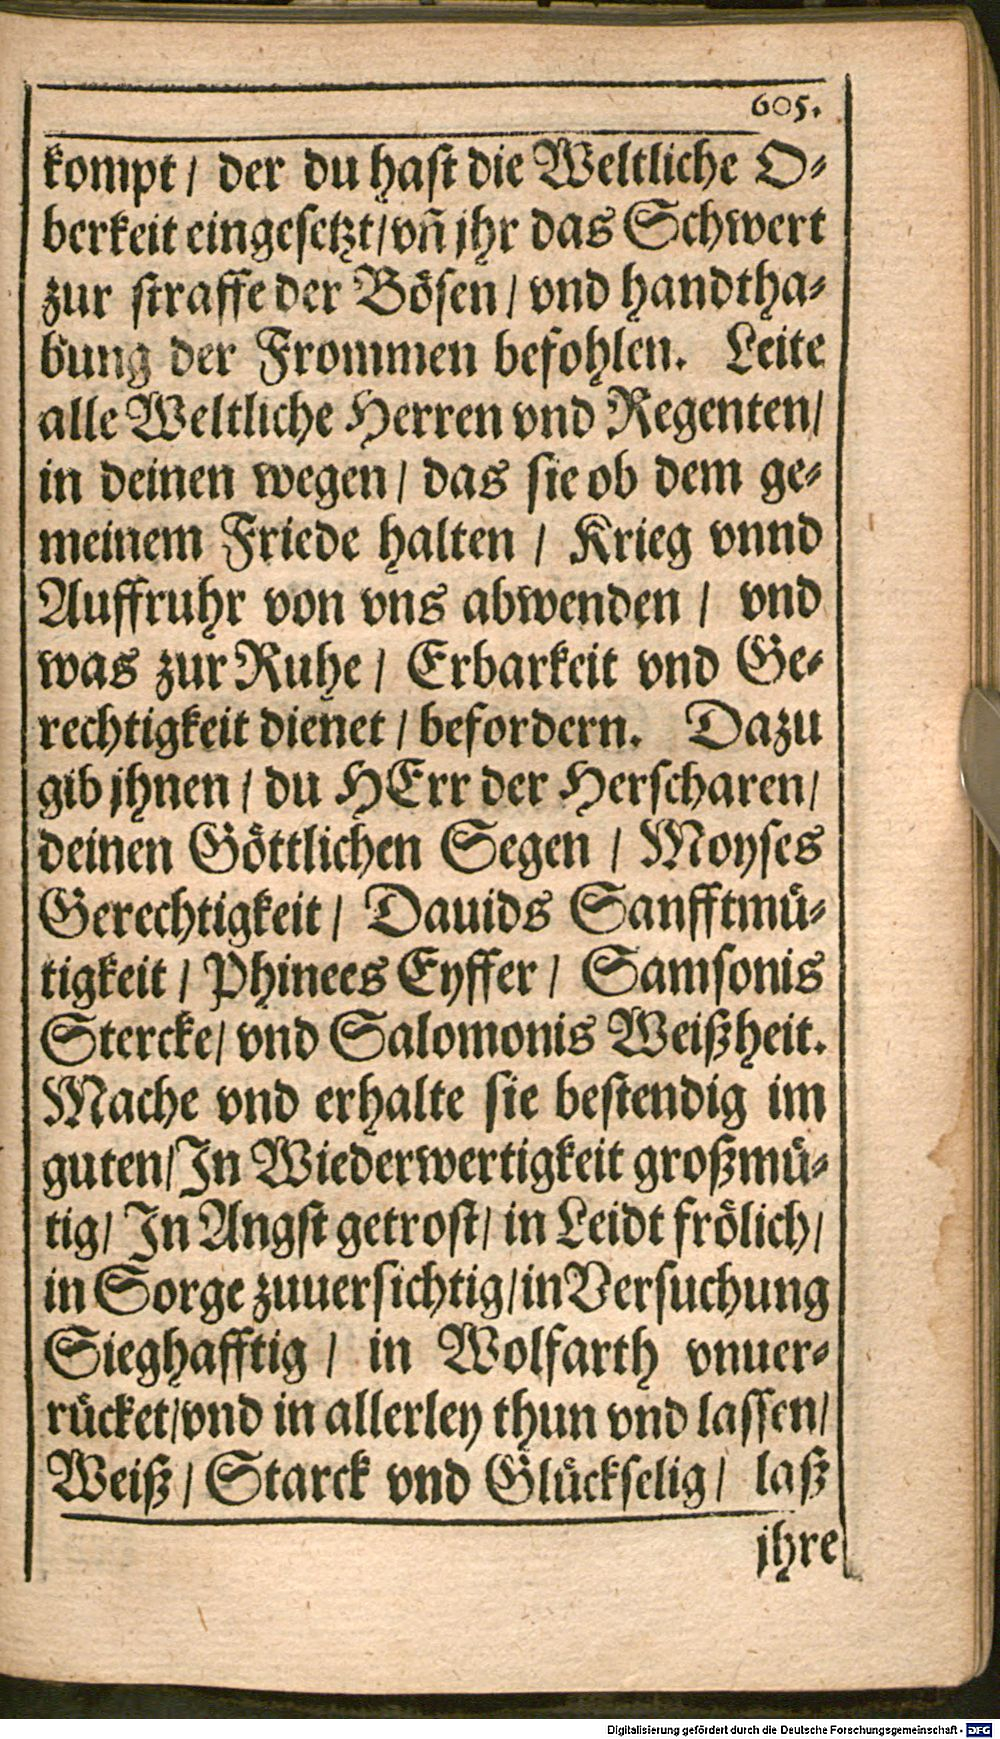 605.
kompt / der du hast die Weltliche O-
berkeit eingesetzt/vñ jhr das Schwert
zur straffe der Bösen / vnd handtha-
bung der Frommen befohlen. Leite
alle Weltliche Herren vnd Regenten/
in deinen wegen / das sie ob dem ge-
meinem Friede halten / Krieg vnnd
Auffruhr von vns abwenden / vnd
was zur Ruhe / Erbarkeit vnd Ge-
rechtigkeit dienet / befordern. Dazu
gib jhnen / du HErr der Herscharen/
deinen Göttlichen Segen / Moyses
Gerechtigkeit / Dauids Sanfftmü-
tigkeit / Phinees Eyffer / Samsonis
Stercke/ vnd Salomonis Weißheit.
Mache vnd erhalte sie bestendig im
guten/In Wiederwertigkeit großmü-
tig/ In Angst getrost/ in Leidt frölich/
in Sorge zuuersichtig/in Versuchung
Sieghafftig / in Wolfarth vnuer-
rücket/vnd in allerley thun vnd lassen/
Weiß / Starck vnd Glückselig / laß
jhre
Digitalisierung gefördert durch die Deutsche Forschungsgemeinschaft - DFG